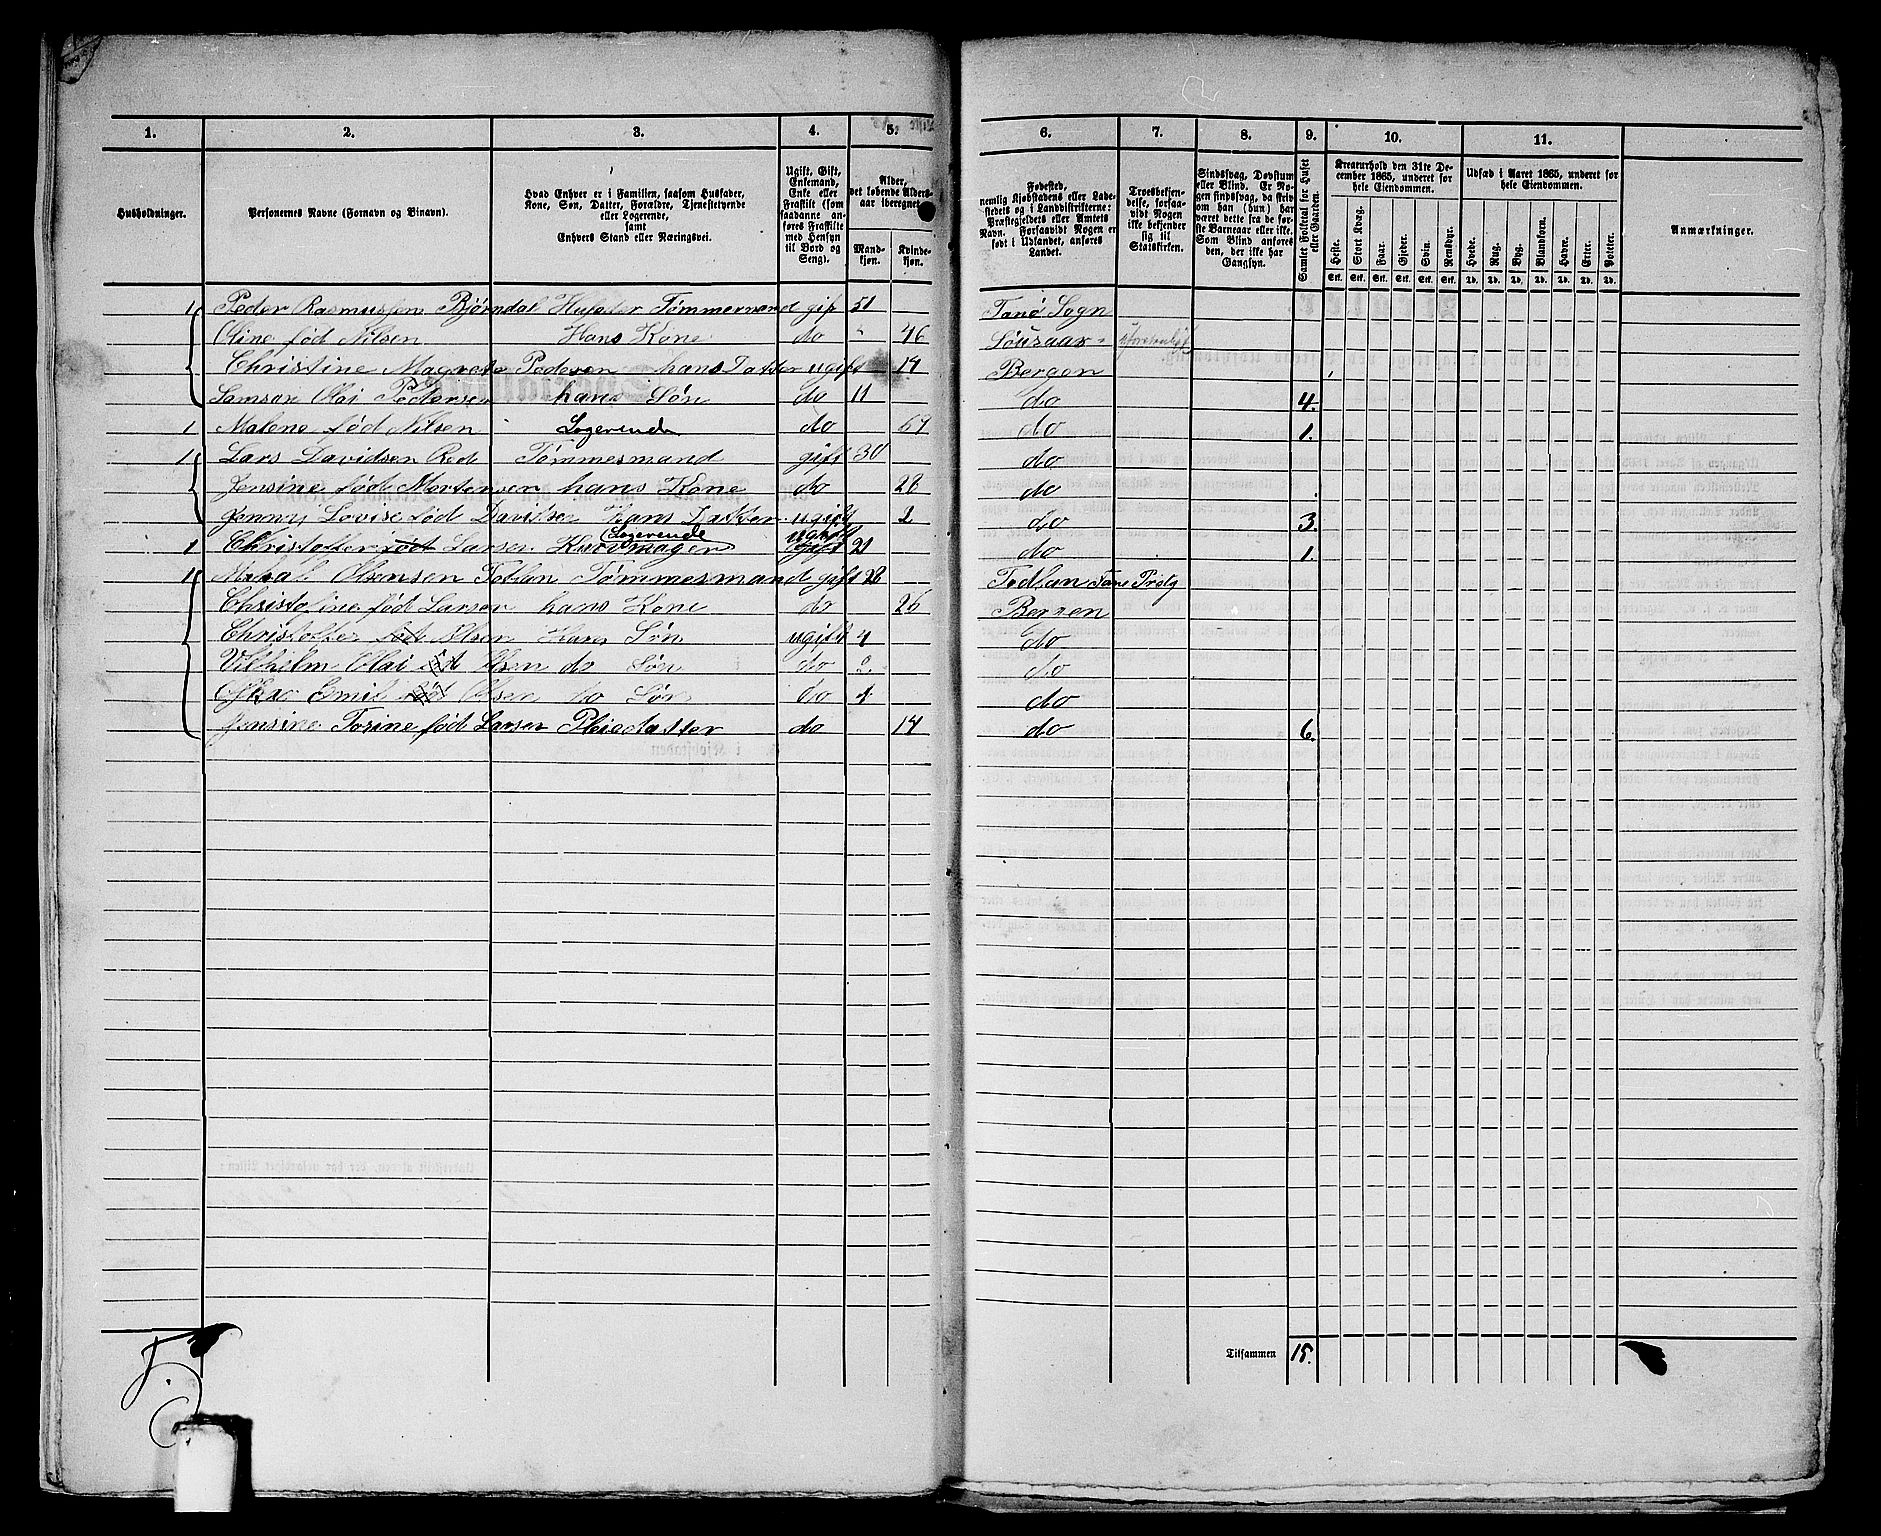 1. 2. 3. 4. 5. 6. 7. 8. 9. 10. 11.
Husholdninger.
Personernes Navne (Fornavn og Binavn).
Hvad Enhver er i Familien, saasom Husfader, Kone, Søn, Datter, Forældre, Tjenestetyende eller Logerende, samt Enhvers Stand eller Næringsvei.
Ugift, Gift, Enkemand, Enke eller Fraskilt (som saadanne anføres Fraskilte med Hensyn til Bord og Seng).
Alder, det løbende Aldersaar iberegnet.
Mandkjøn. Kvindekjøn.
Fødested, nemlig Kjøbstadens eller Ladestedets og i Landdistrikterne: Præstegjeldets eller Amtets Navn. Forsaavidt Nogen er født i Udlandet, anføres Landet.
Troesbekjendelse, forsaavidt Nogen ikke bekjender sig til Statskirken.
Sindssvag, Døvstum eller Blind. Er Nogen sindssvag, da skrives om han (hun) har været dette fra de første Barneaar eller ikke. Som Blind anføres den, der ikke har Gangsyn.
Samlet Folketal for Huset eller Gaarden.
Kreaturhold den 31te December 1865, underet for hele Eiendommen.
Heste. Stort Kvæg. Faar. Gjeder. Svin. Rensdyr.
Stk. Stk. Stk. Stk. Stk. Stk.
Udsæd i Aaret 1865, underet for hele Eiendommen.
Hvede. Rug. Byg. Blandkorn. Havre. Erter. Poteter.
Td. Td. Td. Td. Td. Td. Td.
Anmærkninger.
1 Peder Rasmussen Bjørndal Husfader Tømmermand gift 51 Fanø Sogn
Oline fød Nilsen Hans Kone do 46
Christine Magrete Pedersen hans Datter ugift 14 Bergen
Samson Olai Pedersen hans Søn do 11 do 4.
1 Malene fød Nilsen Logerende do 67 do 1.
1 Lars Davidsen Tømmesmand gift 30 do
Jensine fød Mortensen hans Kone do 28 do
Jenny Lovise fød Davidsen Hans Datter ugift 2 do 3.
1 Christoffer fød Larsen Logerende ugift 21 do 1.
1 Mikal Olsensen Totlan Tømmesmand gift 28 Totlan Fane Prstg
Christofine fød Larsen hans Kone do 26 Bergen
Christoffer fød Olsen Hans Søn ugift 4 do
Vilhelm Olai fød Olsen do Søn do 2 do
Emil fød Olsen do Søn do 1 do
Jensine Torine fød Larsen Pleiedatter do 14 do 6.
Tilsammen 15.